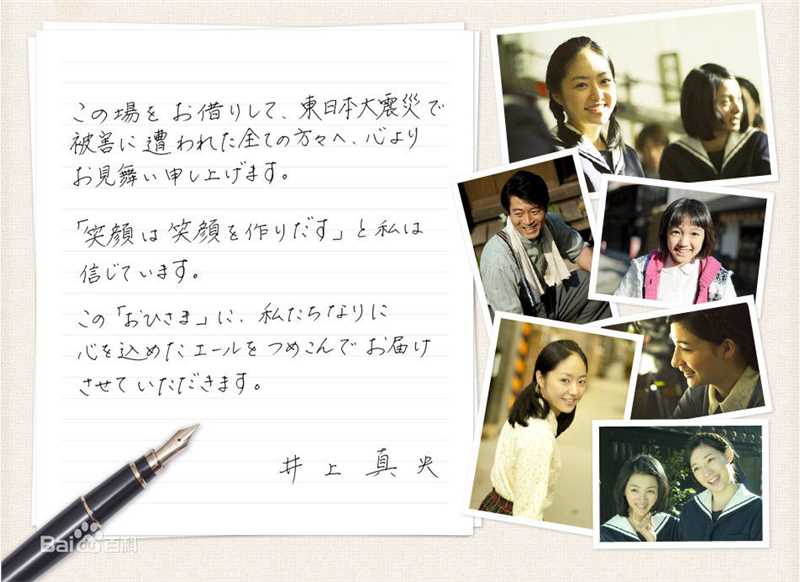 この場をお借りして、東日本大震災で
被害に遭われた全ての方々へ、心より
お見舞い申し上げます。
「笑顔は笑顔を作りだす」と私は
信じています。
この「おひさま」に、私たちなりに
心を込めたエールをつめこんでお届け
させていただきます。
井上真央
Bai百科